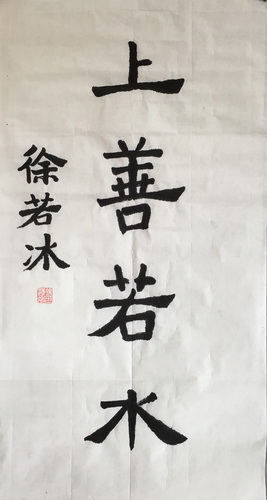 上善若水
徐若冰